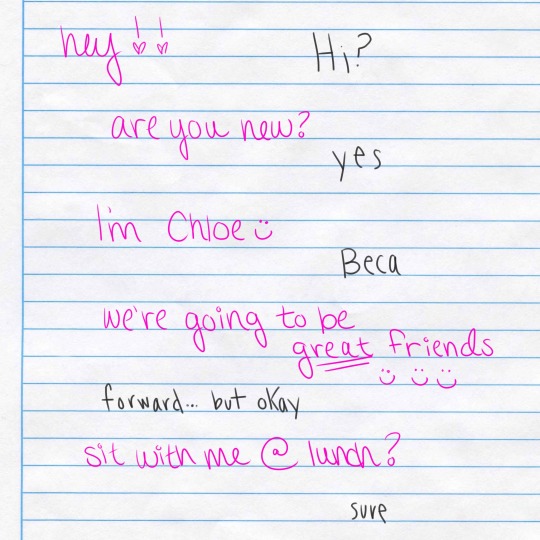 hey!!
Hi?
are you new?
yes
I'm Chloe
Beca
we're going to be
great friends
forward... but okay
sit with me @ lunch?
sure